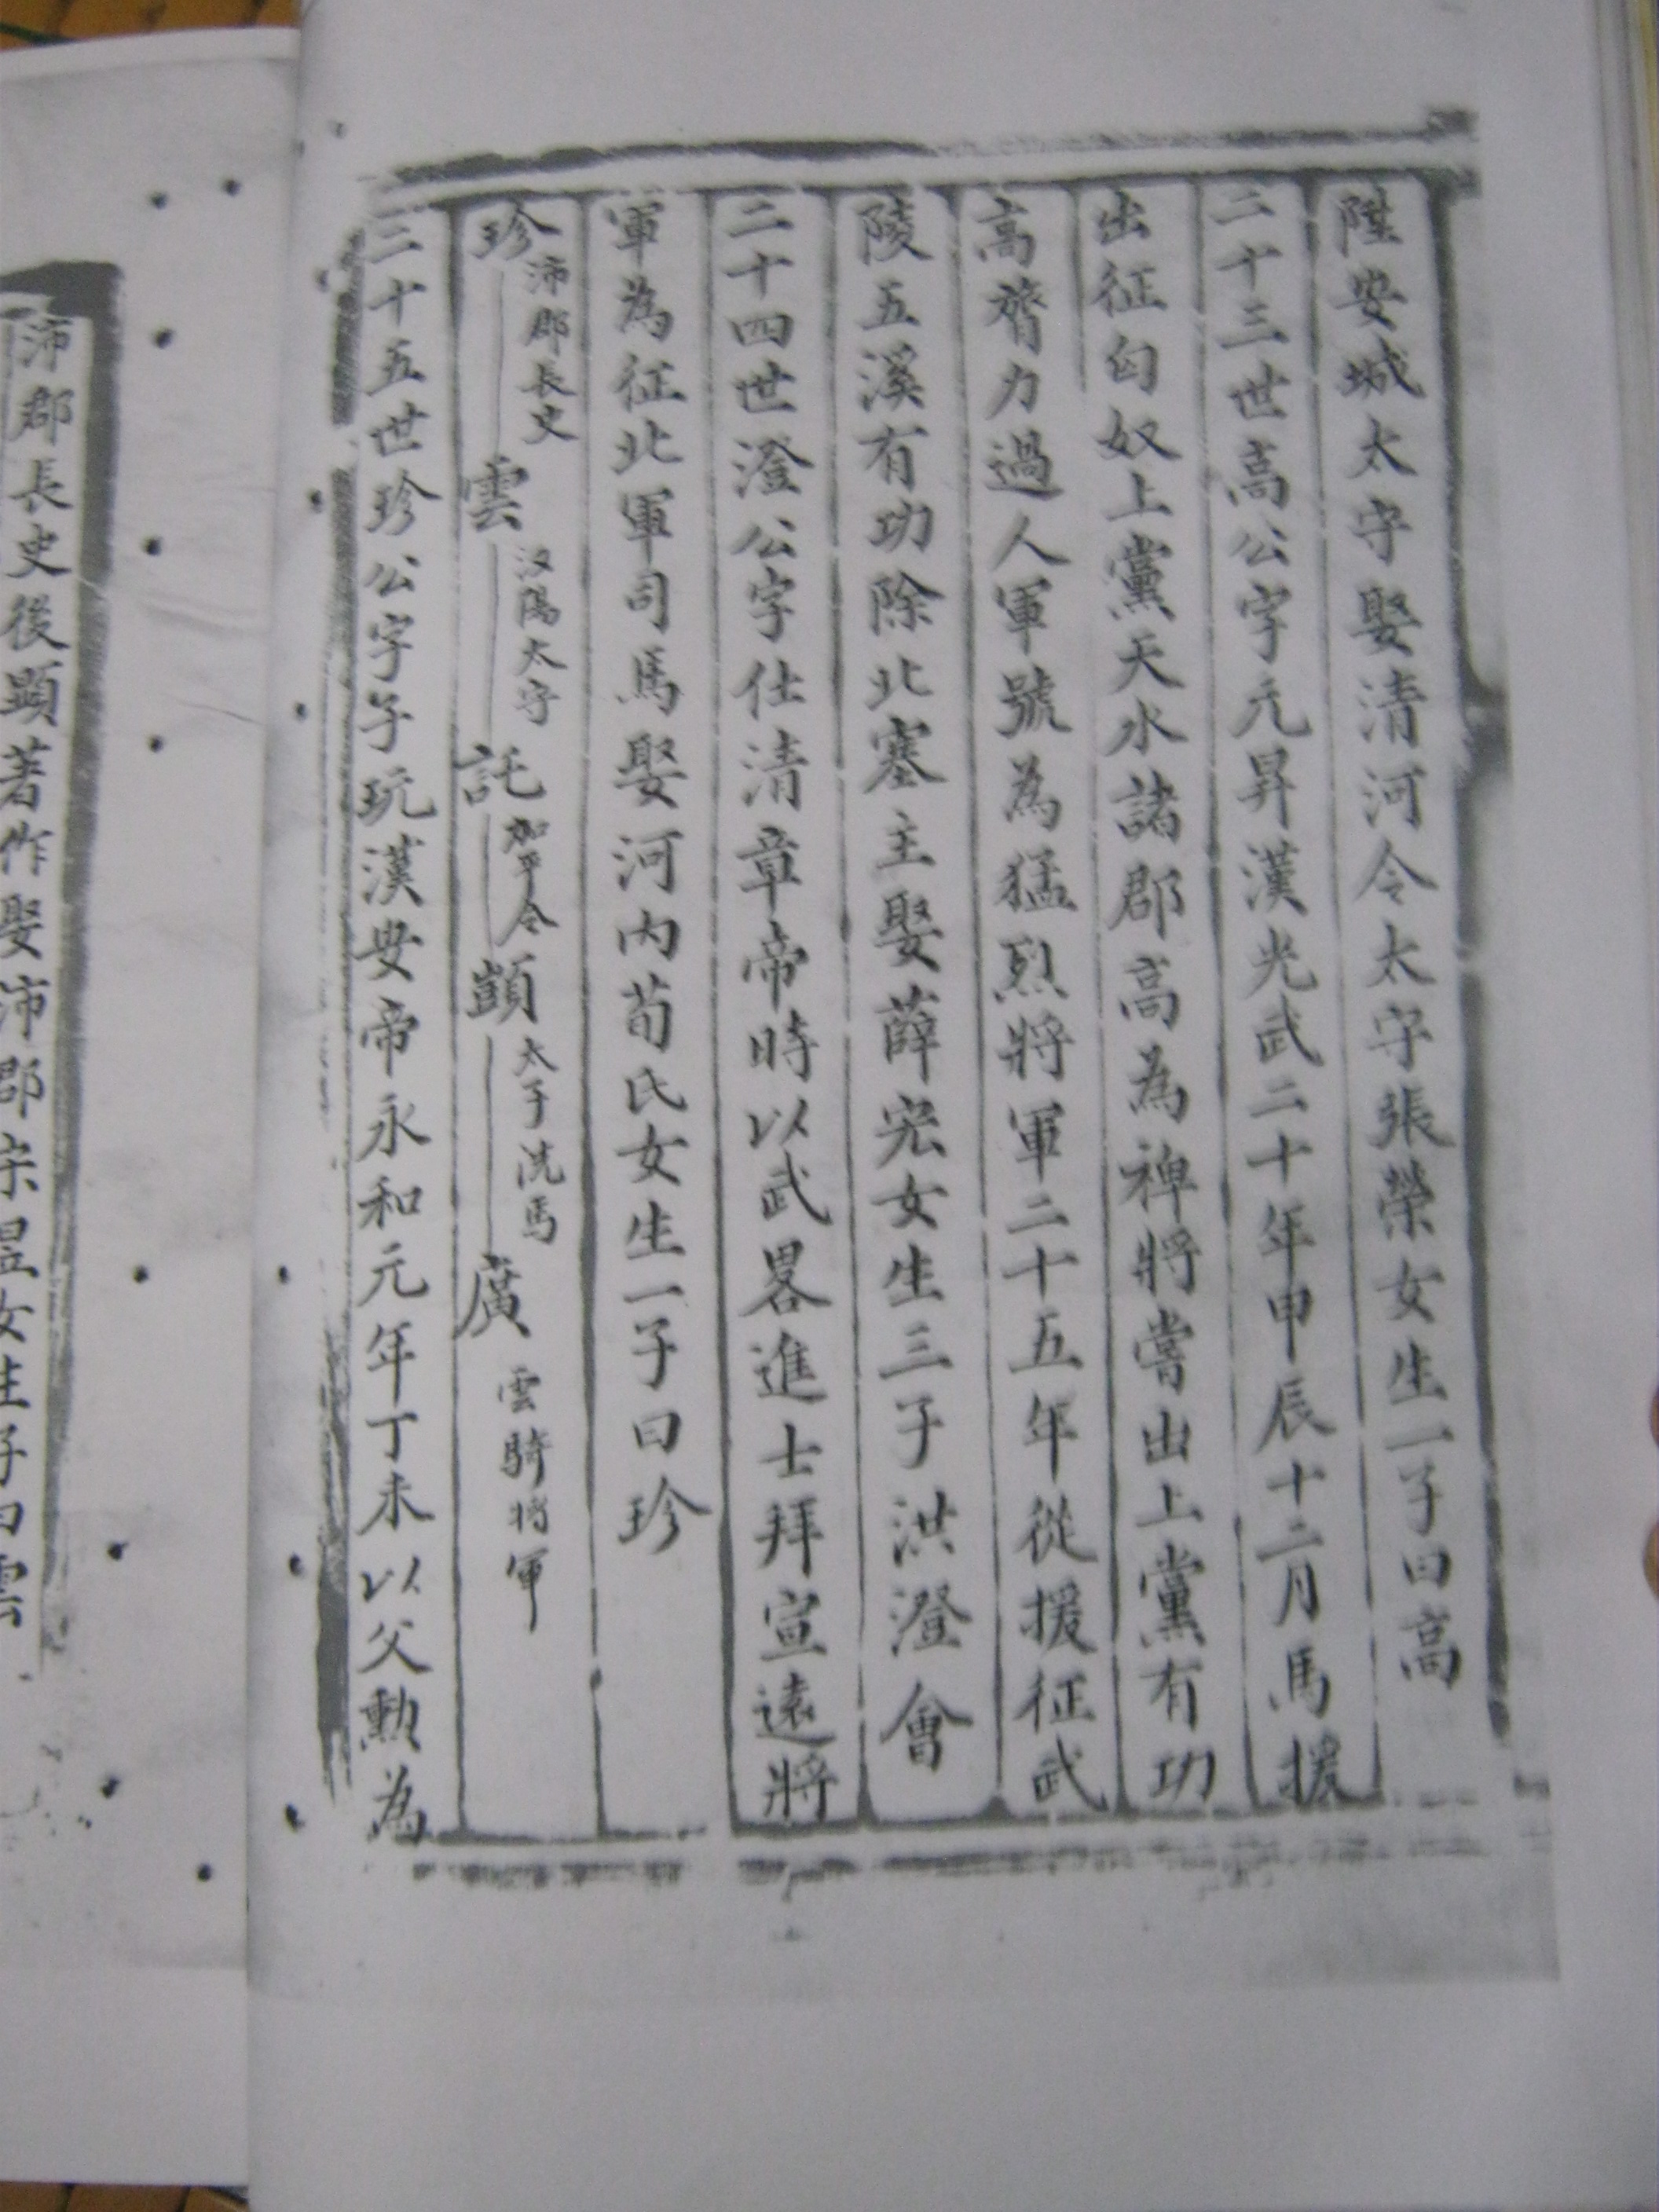 陞安城太守娶清河令太守張榮女生一子曰高
二十三世高公字元昇漢光武二十年甲辰十二月馬援
出征匈奴上黨天水諸郡高為裨將嘗出上黨有功
高膂力過人軍號為猛烈將軍二十五年從援征武
陵五溪有功除北塞主娶薛宏女生三子洪澄會
二十四世澄公字仕清章帝時以武畧進士拜宣遠將
軍為征北軍司馬娶河內荀氏女生一子曰珍
珍沛郡長史 雲汉陽太守 託加平令 顗太子洗馬 廣雲騎将軍
二十五世珍公字子玩漢安帝永和元年丁未以父勲為
沛郡長史後顯著作娶沛郡宗昱女生子曰雲